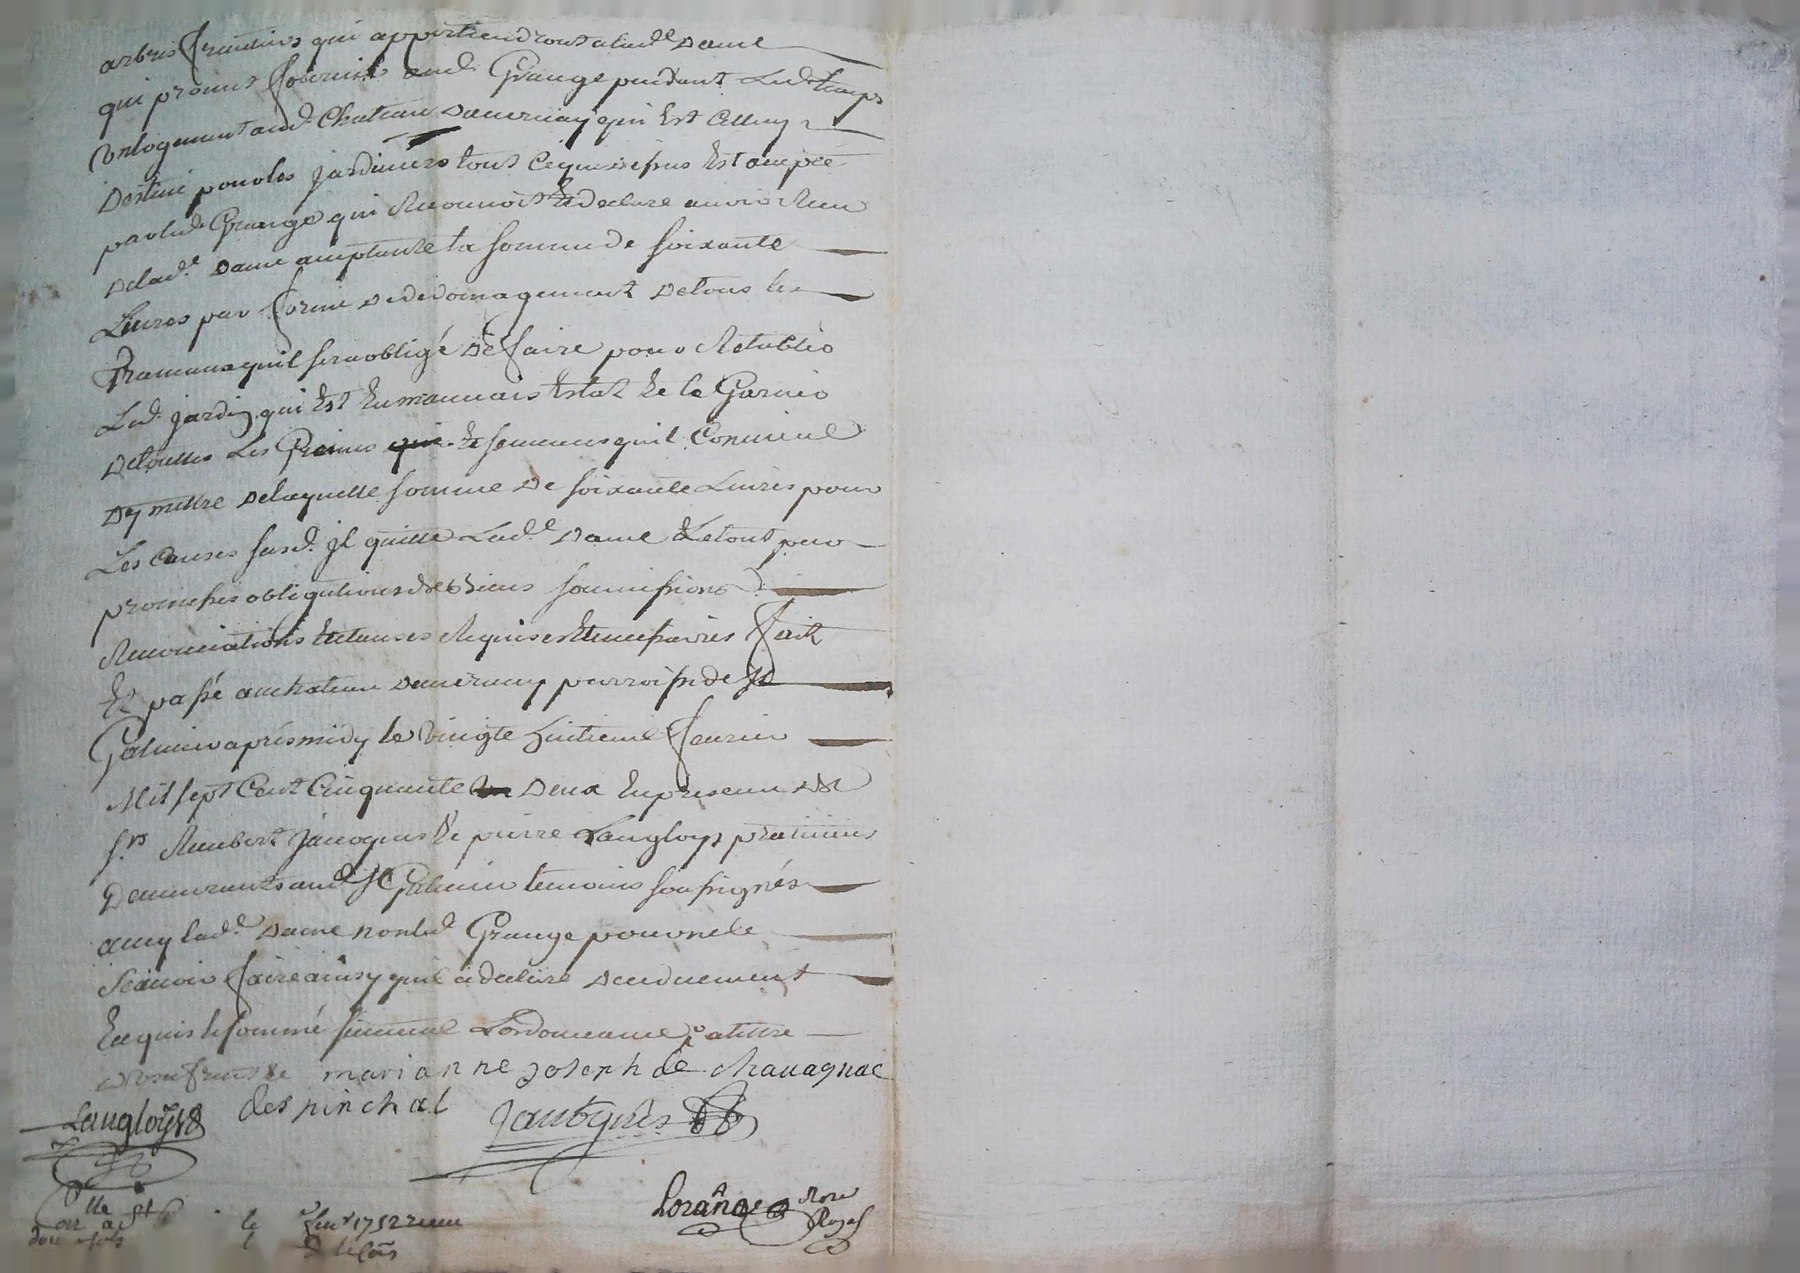 arbres fruitiers qui appartiendront a lad.e Dame
qui promet fournir aud. Grange pendant led. temps
un logement aud. Chateau Dauernay qui Est Celluy
Destiné pour les jardiniers tout Ce que Dessus Est accepté
par led. Grange qui Reconnoit Et declare auoir Receu
de lad.e Dame la somme de soixante
Liures par forme de dedomagement de tous les
trauaux quil sera obligé de faire pour Retablir
Led. jardin qui Est En mauuais Estat Et le Garnir
de touttes Les Graines Et semences quil Conuient
Dy mettre de laquelle somme de soixante Liures pour
Les Causes susd. jl quitte Lad.e Dame Et le tout par
promesses obligations de Biens soumissions
Renonciations Et clauses Requises Et necessaires fait
Et passé au chateau Dauernay parroisse de St
Galmier apres midy le Vingte huitieme feurier
Mil sept Cent Cinquante Deux En presence de
s.rs Rambert Jacoques Et pierre Langloys praticiens
Demeurants aud. St Galmier temoins soussignés
auec lad.e Dame non led. Grange pour ne le
Scauoir faire ainsy quil a declaré deuduement
Enquis Et sommé suiuant Lordonnance
marianne joseph de chauagnac
despinchal
Langloys
Lorange Nore
Royal
feur 1752